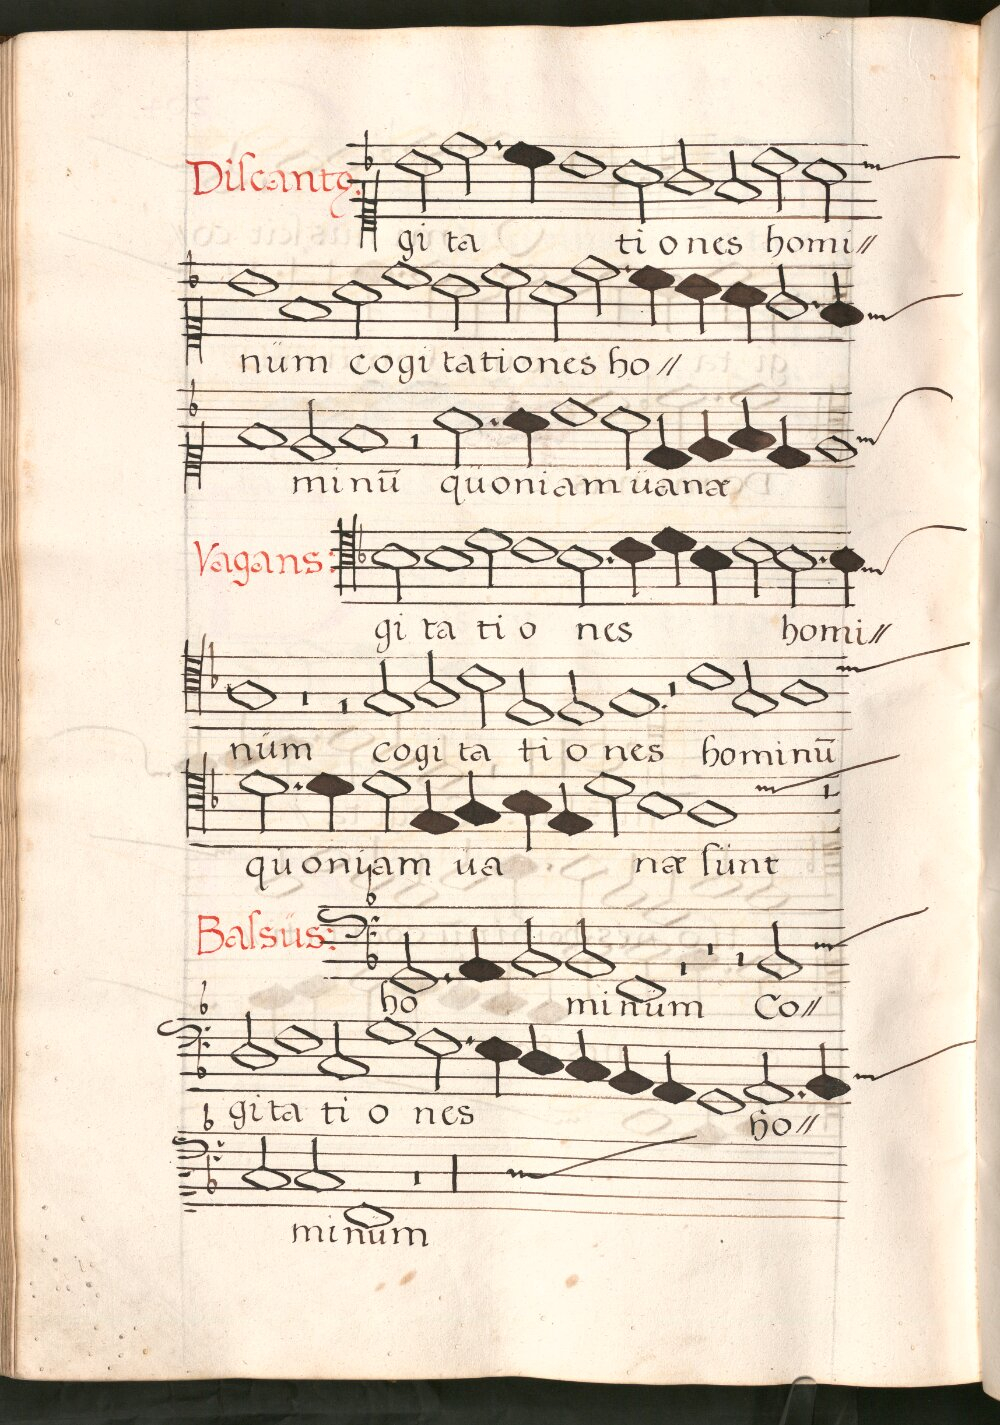 Discantꝰ:
gi ta ti o nes homi//
nüm cogi tationes ho//
minū quoniam üanæ
Vagans:
gi ta ti o nes homi//
nüm cogi ta ti o nes hominū
quoniam üa næ sünt
Bassüs:
ho minüm Co//
gi ta ti o nes ho//
minüm